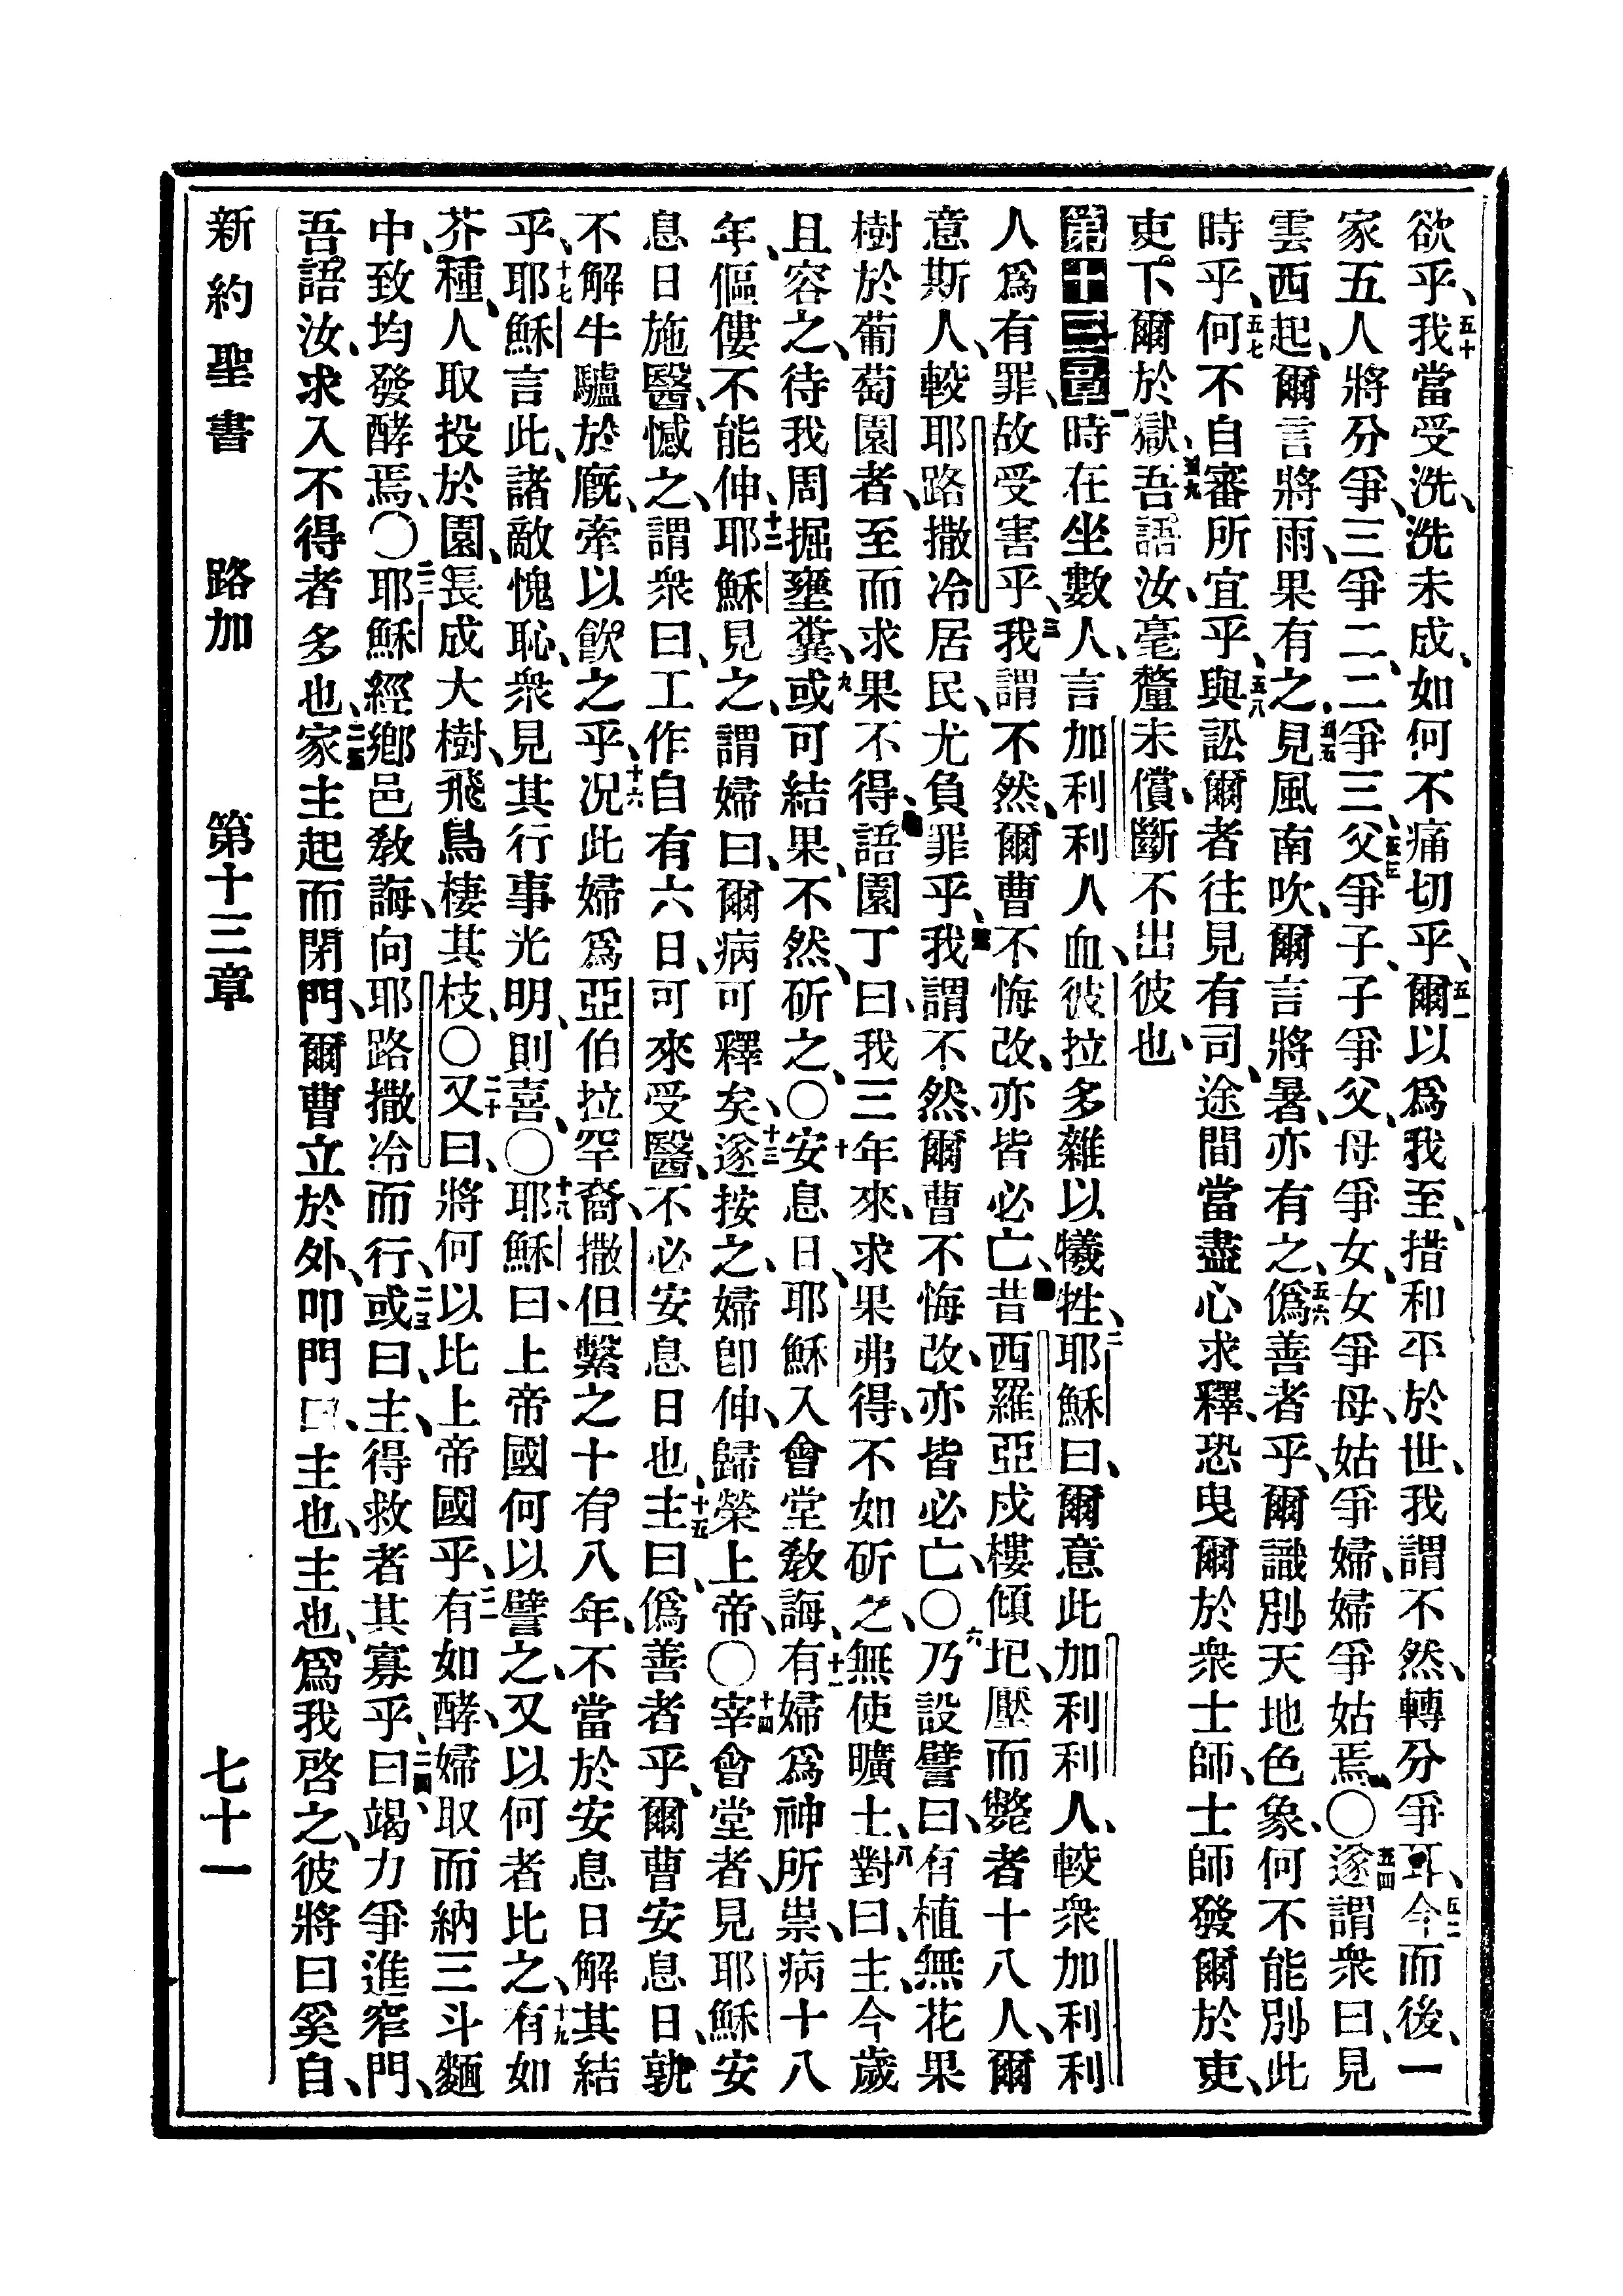 欲乎、五十我當受洗、洗未成、如何不痛切乎、五一爾以爲我至、措和平於世、我謂不然、轉分爭耳、五二今而後、一
家五人將分爭、三爭二、二爭三、五三父爭子、子爭父、母爭女、女爭母、姑爭婦、婦爭姑焉、〇五四遂謂衆曰、見
雲西起、爾言將雨、果有之、五五見風南吹、爾言將暑、亦有之、五六僞善者乎、爾識別天地色象、何不能別此
時乎、五七何不自審所宜乎、五八與訟爾者往見有司、途間當盡心求釋、恐曳爾於衆士師、士師發爾於吏、
吏下爾於獄、五九吾語汝、毫釐未償、斷不出彼也、
第十三章一時在坐數人、言加利利人血、彼拉多雜以犧牲、二耶穌曰、爾意此加利利人、較衆加利利
人爲有罪、故受害乎、三我謂不然、爾曹不悔改、亦皆必亡、昔西羅亞戍樓傾圮、壓而斃者十八人、爾
意斯人、較耶路撒冷居民、尤負罪乎、五我謂不然、爾曹不悔改、亦皆必亡、〇六乃設譬曰、有植無花果
樹於葡萄園者、至而求果不得、語園丁曰、我三年來、求果弗得、不如斫之、無使曠土、八對曰、主、今歲
且容之、待我周掘壅糞、九或可結果、不然斫之、〇十安息日、耶穌入會堂教誨、十一有婦爲神所祟、病十八
年、傴僂不能伸、十二耶穌見之、謂婦曰、爾病可釋矣、十三遂按之、婦卽伸、歸榮上帝、〇十四宰會堂者、見耶穌安
息日施醫、憾之、謂衆曰、工作自有六日、可來受醫、不必安息日也、十五主曰、僞善者乎、爾曹安息日、孰
不解牛驢於廐、牽以飮之乎、十六况此婦爲亞伯拉罕裔、撒但繫之十有八年、不當於安息日解其結
乎、十七耶穌言此、諸敵愧恥、衆見其行事光明、則喜、〇十八耶穌曰、上帝國何以譬之、又以何者比之、十九有如
芥種、人取投於園、長成大樹、飛鳥棲其枝、〇二十又曰、將何以比上帝國乎、二一有如酵、婦取而納三斗麵
中、致均發酵焉、〇二二耶穌經鄉邑教誨、向耶路撒冷而行、二三或曰、主、得救者其寡乎、二四曰、竭力爭進窄門、
吾語汝、求入不得者多也、二五家主起而閉門、爾曹立於外、叩門曰、主也、主也、爲我啓之、彼將曰、奚自、
新約聖書　路加　第十三章　七十一